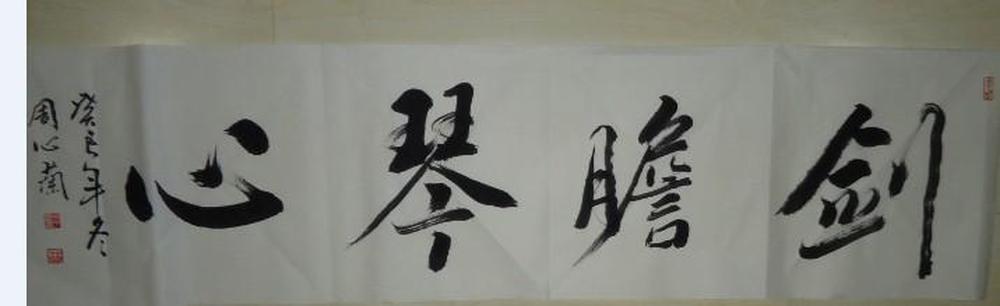 剑胆琴心
癸巳年冬
周心兰